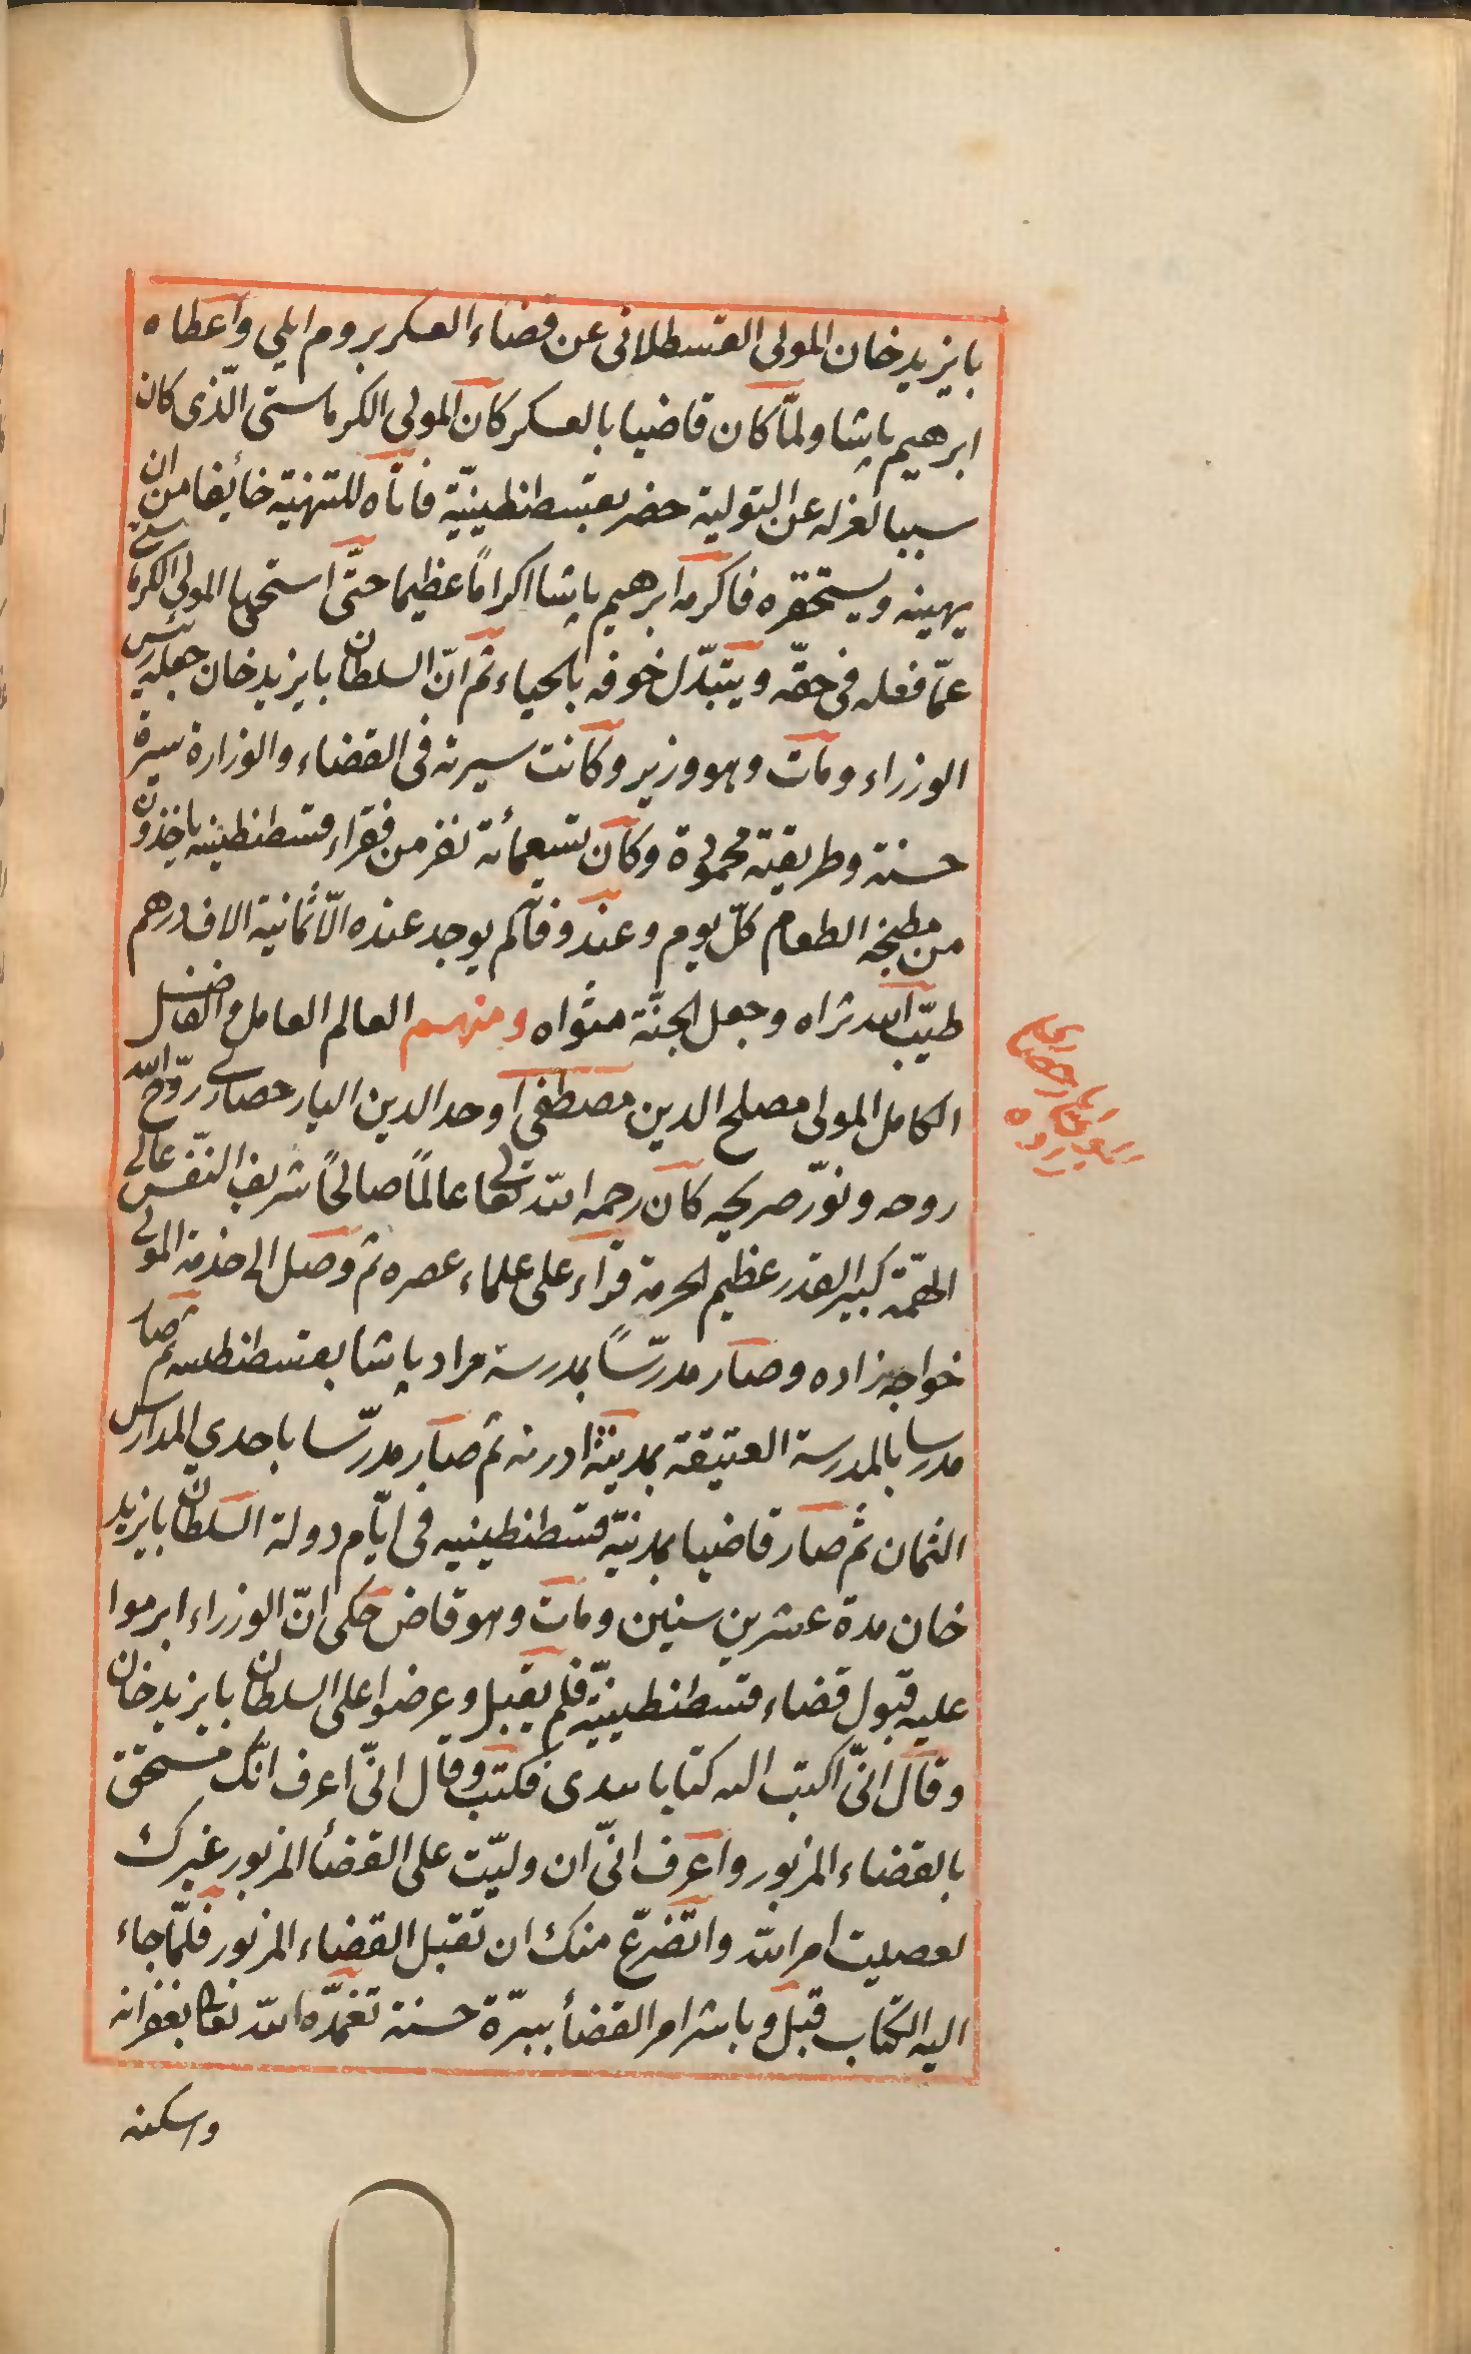 بايزيد خان المولى القسطلانى عن قضاء العسكر بروم ايلي وأعطاه
ابرهيم پاشا ولمّا كان قاضيا بالعسكر كان المولى الكرماستى الّذى كان
سببا لعزله عن التولية حضر بقسطنطينيّة فاتاه للتهنية خائفا من ان
يهينه ويستحقره فاكرمه ابرهيم پاشا اكراماً عظيما حتّى استحيا المولى الكرماستى
عمّا فعله فى حقّه ويتبدّل خوفه بالحياء ثم انّ السلطان بايزيد خان جعله رئيس
الوزراء ومات وهو وزير وكانت سيرته فى القضاء والوزارة سيرة
حسنة وطريقته محمودة وكان تسعمأئة نفر من فقراء قسطنطينيه ياخذون
من مطبخه الطعام كلّ يوم وعند وفاته لم يوجد عنده الّا ثمانية الاف درهم
طيّب الله ثراه وجعل الجنّة مثواه ومنهم العالم العامل والفاضل
الكامل المولى مصلح الدين مصطفى اوحد الدين اليارحصارى روّح الله
روحه ونوّر ضريحه كان رحمه الله تعالى عالمًا صالحًا شريف النّفس عالى
الهمّة كبير القدر عظيم الحرمة قراء على علماء عصره ثم وصل الى خدمة المولى
خواجه زاده وصار مدرّساً بمدرسة مراد پاشا بقسطنطينيه ثم صار
مدرسا بالمدرسة العتيقة بمدينة ادرنه ثم صار مدرّسا باحدي المدارس
الثمان ثم صار قاضيا بمدينة قسطنطينيه فى ايّام دولة السلطان بايزيد
خان مدة عشرين سنين ومات وهو قاض حكى انّ الوزراء ابرموا
عليه قبول قضاء قسطنطينيّة فلم يقبل وعرضوا على السلطان بايزيد خان
وقال انّى اكتب اليه كتابا بيدى فكتب وقال انّى اعرف انّك مستحق
بالقضاء المزبور واعرف انّى ان وليّت على القضأ المزبور غيرك
لعصيت امر الله واتضرّع منك ان تقبل القضاء المزبور فلمّا جاء
اليه الكتاب قبل وباشر امر القضأ بسيرة حسنة تغمّده الله تعالى بغفرانه
واسكنه